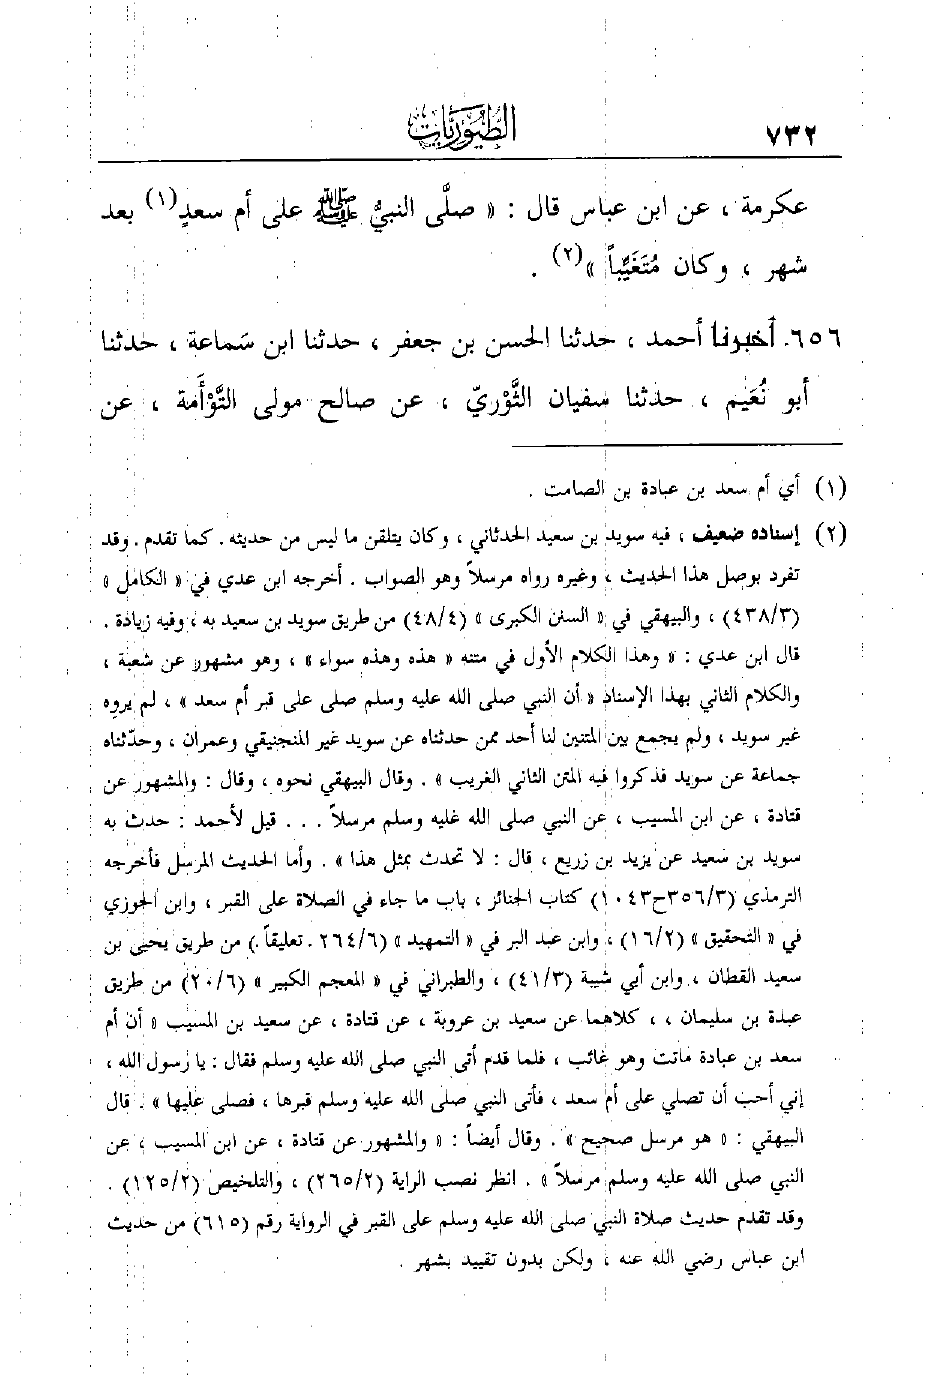 ٧٣٢ الطيوريات
عكرمة ، عن ابن عباس قال : « صلَّى النبيُّ ﷺ على أم سعدٍ(١) بعد
شهر ، وكان مُتَغَيِّباً »(٢) .
٦٥٦. أخبرنا أحمد ، حدثنا الحسن بن جعفر ، حدثنا ابن سَماعة ، حدثنا
أبو نُعَيم ، حدثنا سفيان الثَّوْريّ ، عن صالح مولى التَّوْأَمة ، عن
(١) أي أم سعد بن عبادة بن الصامت .
(٢) إسناده ضعيف ، فيه سويد بن سعيد الحدثاني ، وكان يتلقن ما ليس من حديثه . كما تقدم . وقد
تفرد بوصل هذا الحديث ، وغيره رواه مرسلاً وهو الصواب . أخرجه ابن عدي في « الكامل »
(٤٣٨/٣) ، والبيهقي في « السنن الكبرى » (٤٨/٤) من طريق سويد بن سعيد به ، وفيه زيادة .
قال ابن عدي : « وهذا الكلام الأول في متنه « هذه وهذه سواء » ، وهو مشهور عن شعبة ،
والكلام الثاني بهذا الإسناد « أن النبي صلى الله عليه وسلم صلى على قبر أم سعد » ، لم يروه
غير سويد ، ولم يجمع بين المتنين لنا أحد ممن حدثناه عن سويد غير المنجنيقي وعمران ، وحدّثناه
جماعة عن سويد فذكروا فيه المتن الثاني الغريب » . وقال البيهقي نحوه ، وقال : والمشهور عن
قتادة ، عن ابن المسيب ، عن النبي صلى الله عليه وسلم مرسلاً ... قيل لأحمد : حدث به
سويد بن سعيد عن يزيد بن زريع ، قال : لا تحدث بمثل هذا » . وأما الحديث المرسل فأخرجه
الترمذي (٣٥٦/٣ح١٠٤٣) كتاب الجنائز ، باب ما جاء في الصلاة على القبر ، وابن الجوزي
في « التحقيق » (١٦/٢) ، وابن عبد البر في « التمهيد » (٢٦٤/٦ . تعليقاً.) من طريق يحيى بن
سعيد القطان ، وابن أبي شيبة (٤١/٣) ، والطبراني في « المعجم الكبير » (٢٠/٦) من طريق
عبدة بن سليمان ، ، كلاهما عن سعيد بن عروبة ، عن قتادة ، عن سعيد بن المسيب « أن أم
سعد بن عبادة ماتت وهو غائب ، فلما قدم أتى النبي صلى الله عليه وسلم فقال : يا رسول الله ،
إني أحب أن تصلي على أم سعد ، فأتى النبي صلى الله عليه وسلم قبرها ، فصلى عليها » . قال
البيهقي : « هو مرسل صحيح » . وقال أيضاً : « والمشهور عن قتادة ، عن ابن المسيب ، عن
النبي صلى الله عليه وسلم مرسلاً » . انظر نصب الراية (٢٦٥/٢) ، والتلخيص (١٢٥/٢) .
وقد تقدم حديث صلاة النبي صلى الله عليه وسلم على القبر في الرواية رقم (٦١٥) من حديث
ابن عباس رضي الله عنه ، ولكن بدون تقييد بشهر .